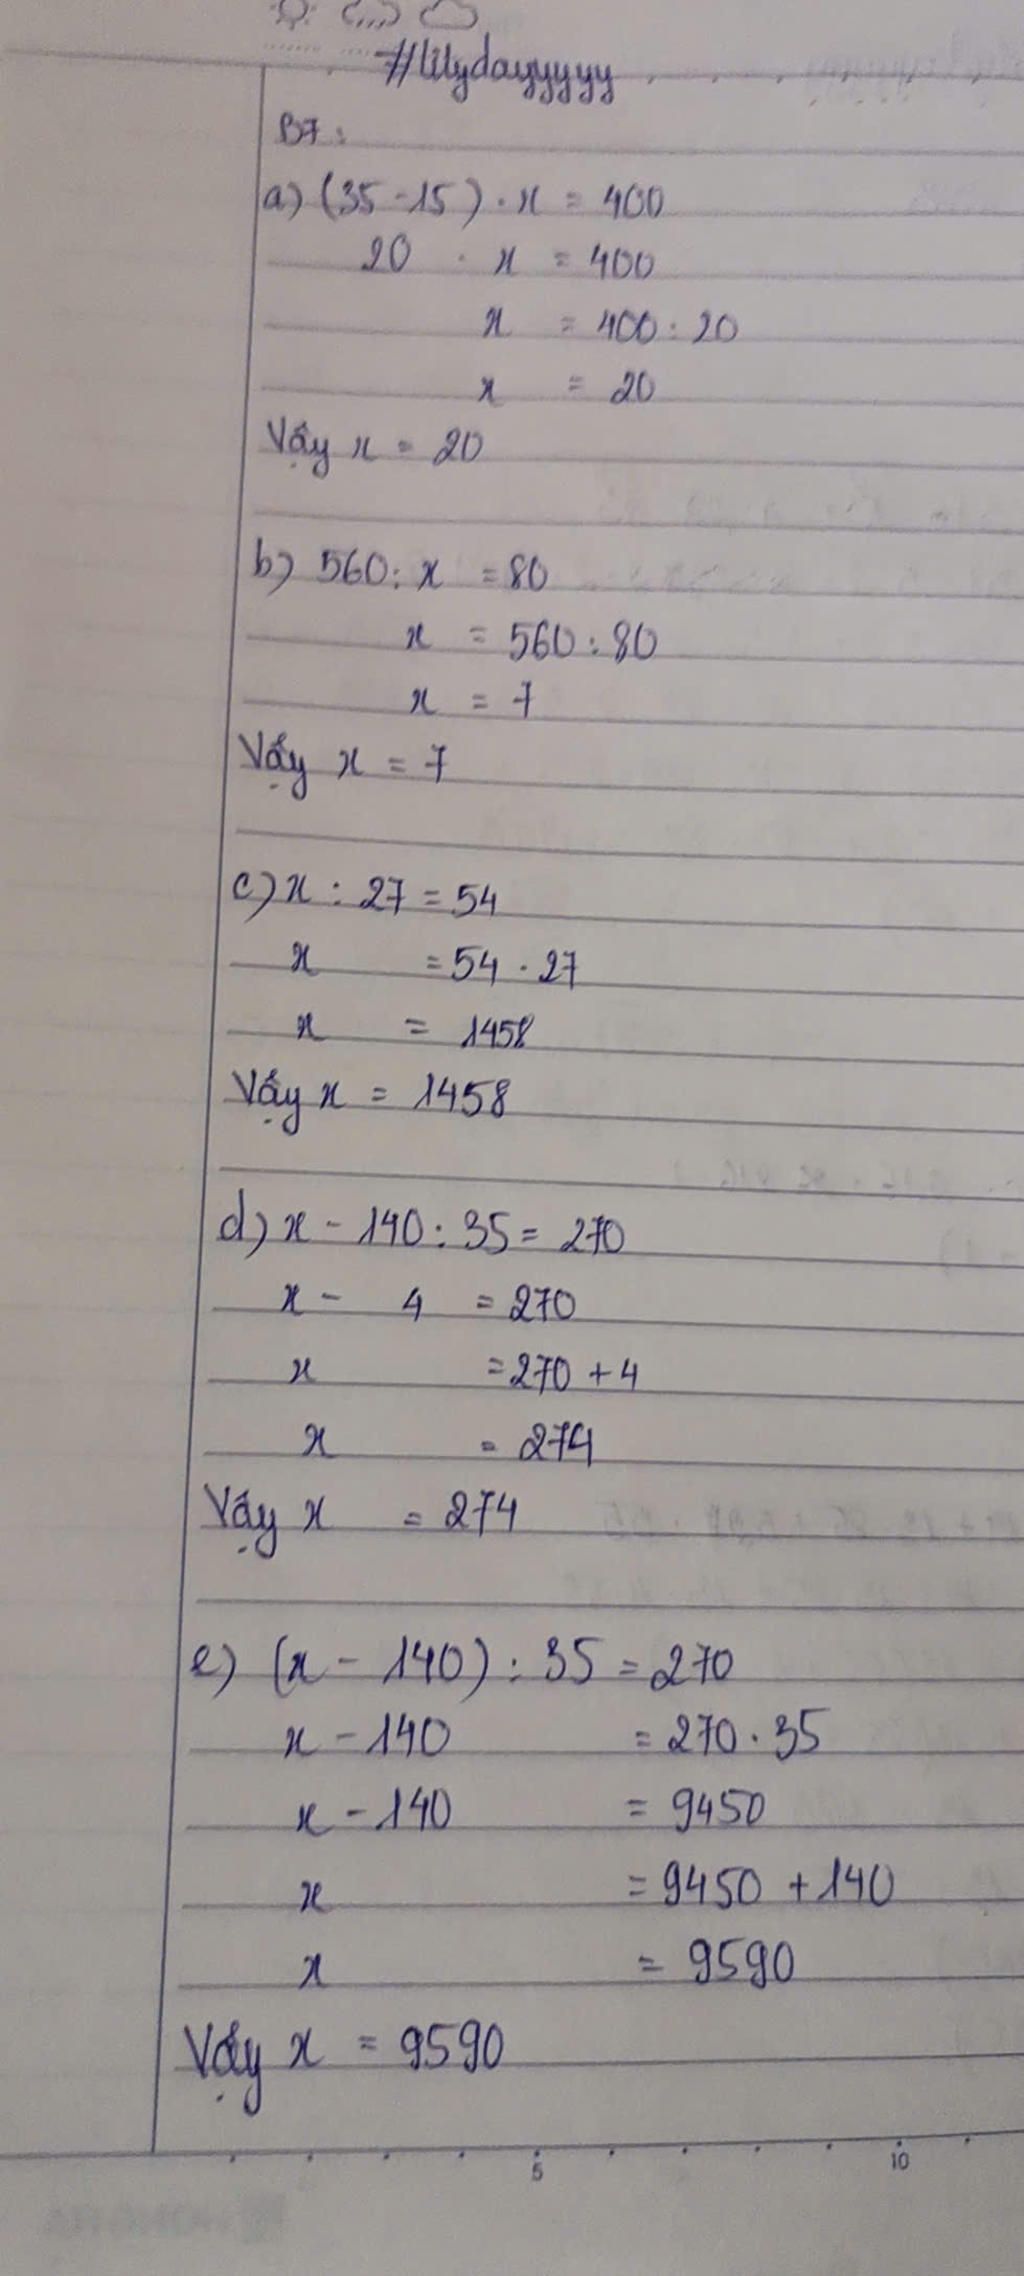 #lilydayyyyy
B7:
a) (35 - 15) . x = 400
20 . x = 400
x = 400 : 20
x = 20
Vậy x = 20
b) 560 : x = 80
x = 560 : 80
x = 7
Vậy x = 7
c) x : 27 = 54
x = 54 . 27
x = 1458
Vậy x = 1458
d) x - 140 : 35 = 270
x - 4 = 270
x = 270 + 4
x = 274
Vậy x = 274
e) (x - 140) : 35 = 270
x - 140 = 270 . 35
x - 140 = 9450
x = 9450 + 140
x = 9590
Vậy x = 9590
5 10